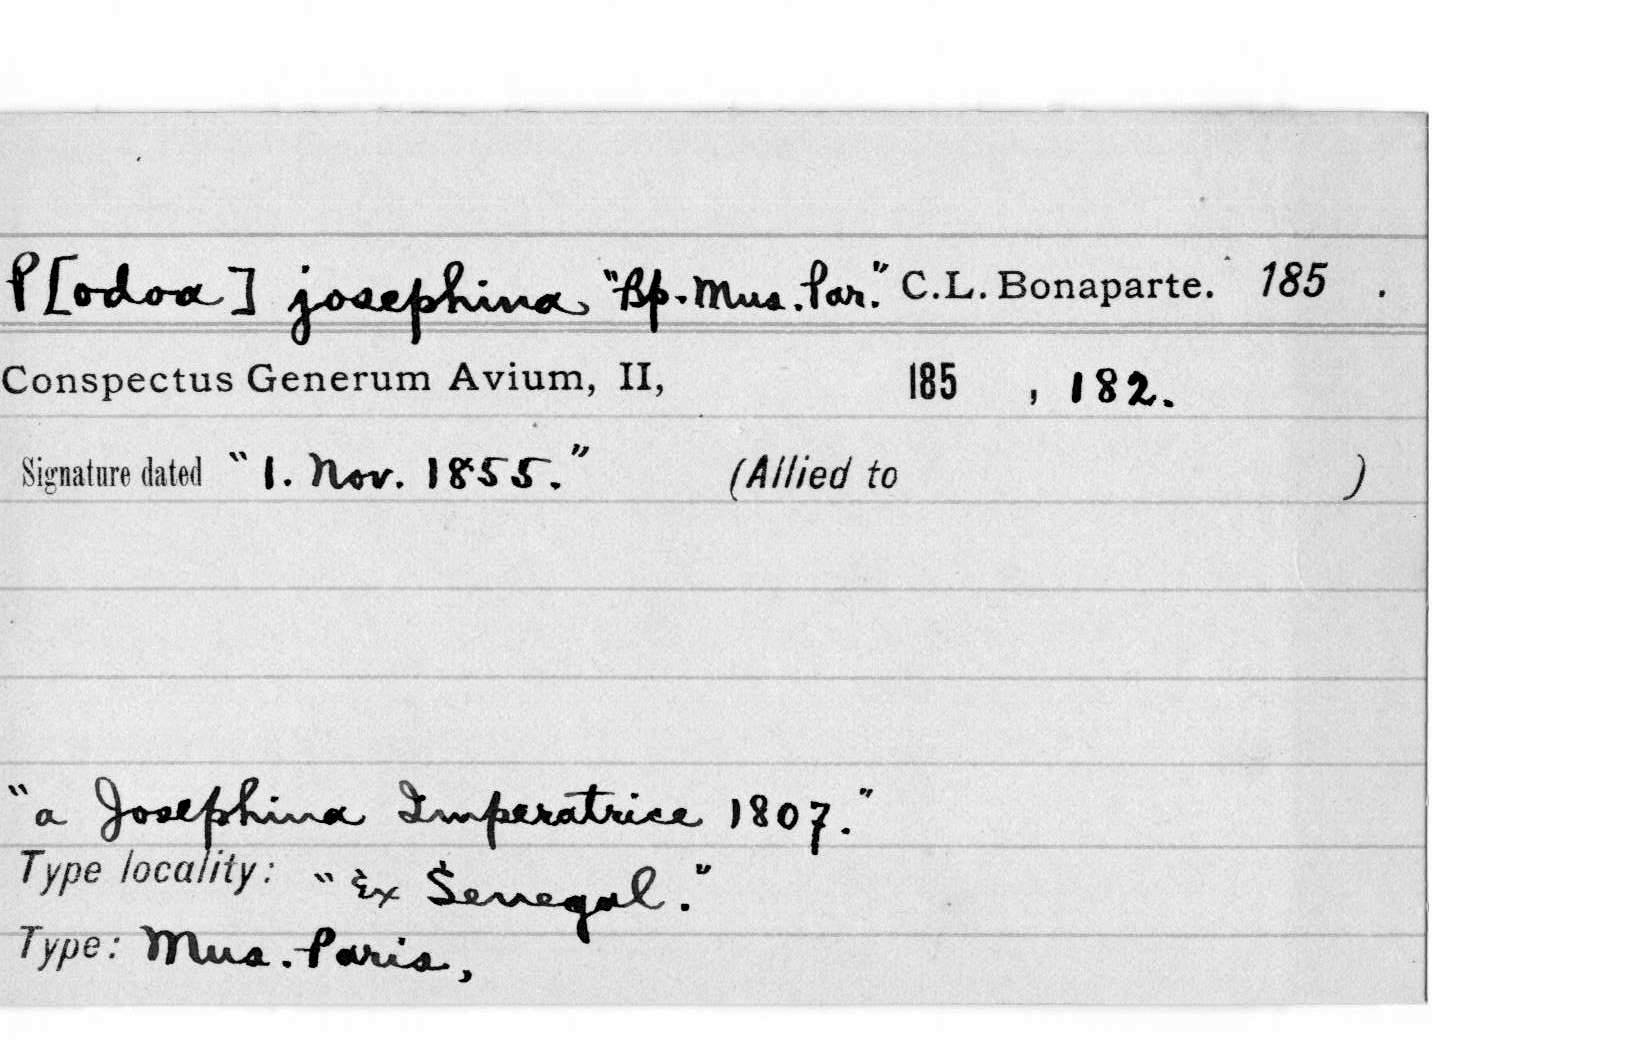 P[odoa] josephina "Bp. Mus. Par." C.L. Bonaparte. 185 .
Conspectus Generum Avium, II, 185 , 182.
Signature dated "1. Nov. 1855." (Allied to )
"a Josephina Imperatrice 1807."
Type locality: "Ex Senegal."
Type: Mus. Paris,